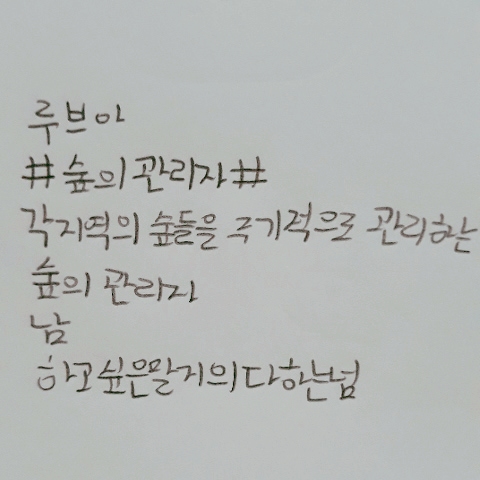 루브아
#숲의 관리자#
각지역의 숲들을 주기적으로 관리하는
숲의 관리자
남
하고싶은말거의다하는넘